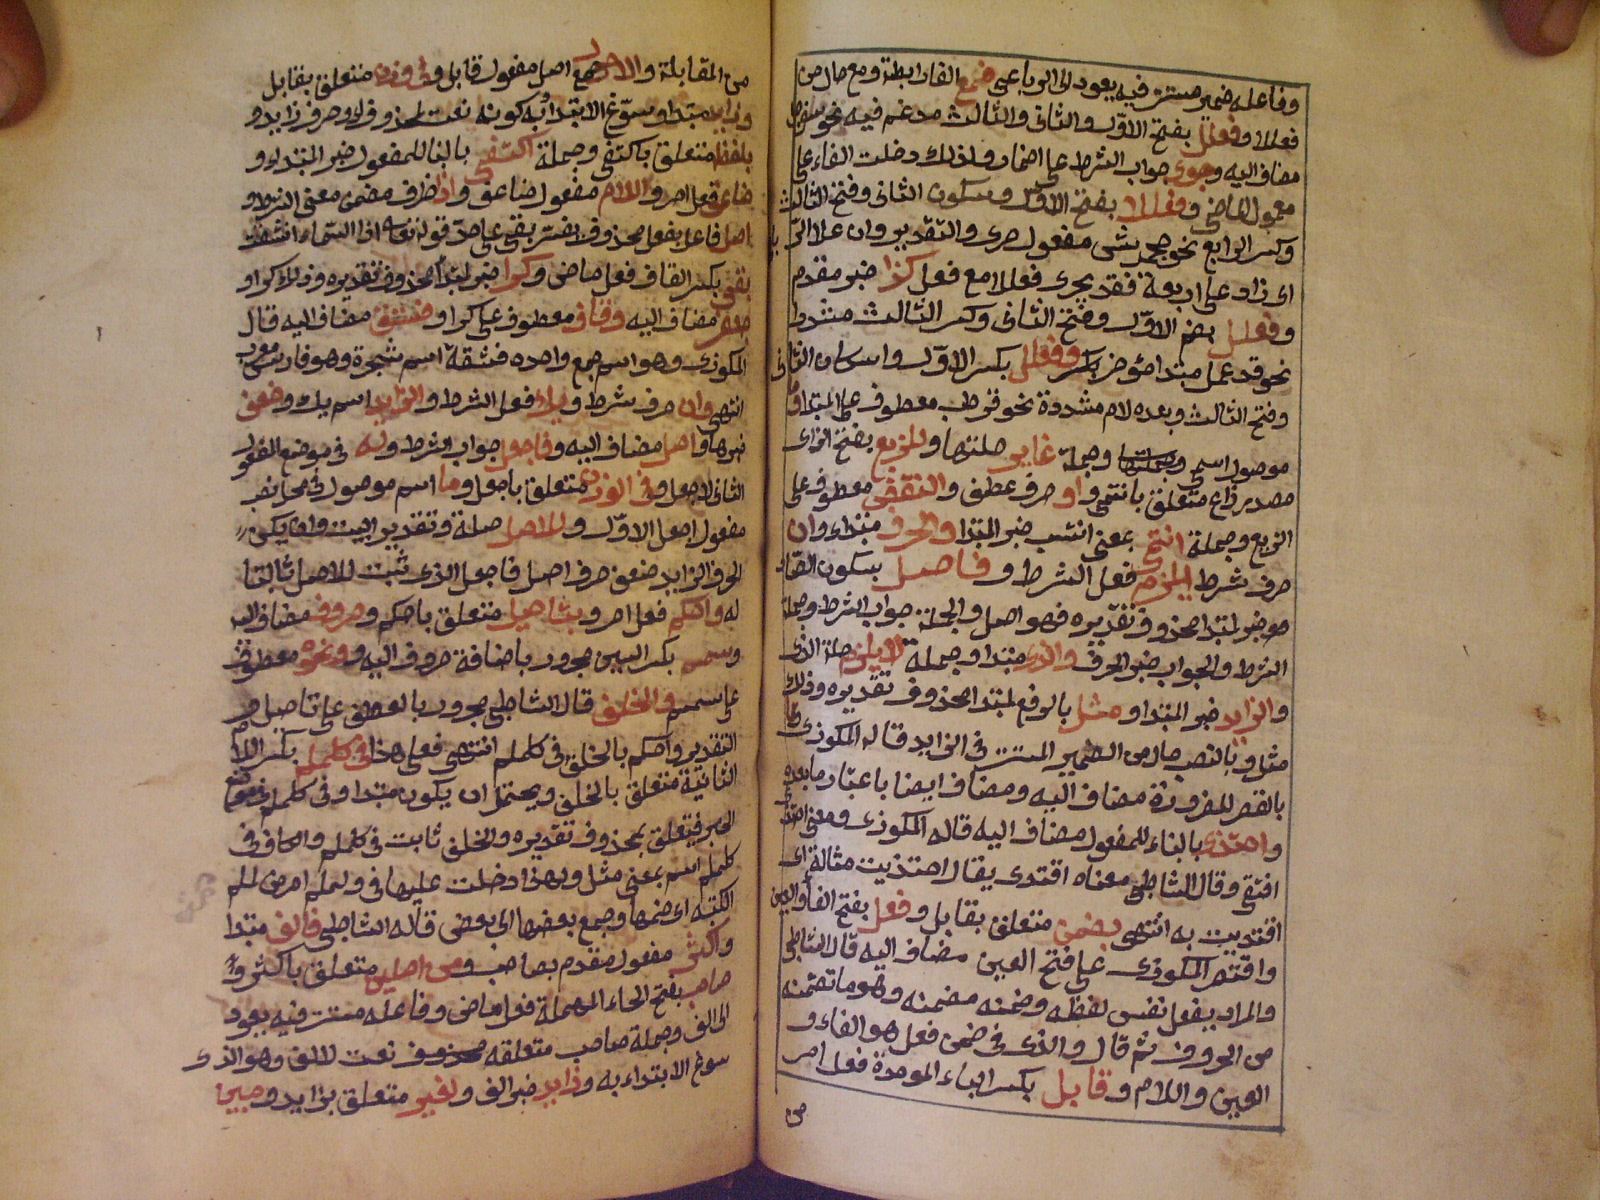 وفاعله ضمير مستتر فيه يعود الى الرباعي فمع الفا رابطة ومع حال من
فعلل وفعلل بفتح الاول والثاني والثالث مدغم فيه نحو سفرجل
مضاف اليه وحوى جواب الشرط على اضمار قد ولذلك دخلت الفاء على
معمول الماضي وفعللا بفتح الاول وسكون الثاني وفتح الثالث
وكسر الرابع نحو جحمرش مفعول حوى والتقدير وان علا الربا
اى زاد على اربعة فقد يحوى فعللا مع فعلل كذا خبر مقدم
وفعلل بضم الاول وفتح الثاني وكسر الثالث مشددا
نحو قذعمل مبتدا مؤخر وفعلل بكسر الاول واسكان الثاني
وفتح الثالث وبعده لام مشددة نحو قرطعب معطوف على المبتدا وما
موصول اسمي وجملة غاير صلتها وللزيد بفتح الزاى
مصدر زاد متعلق بانتمى واو حرف عطف والنقص معطوف على
الزيد وجملة انتمى بمعنى انتسب خبر المبتدا والحرف مبتداء وان
حرف شرط يلزم فعل الشرط وفاصل بسكون الصاد
هو خبر لمبتدا محذوف تقديره فهو اصل والجملة جواب الشرط وجملة
الشرط والجواب خبر الحرف والذى مبتدا وجملة لا يلزم صلة الذى
والزايد خبر المبتدا ومثل بالرفع لمبتدا محذوف تقديره وذلك
مثل وبالنصب حال من الضمير المستتر في الزايد قاله المكودى وتا
بالقصر للضرورة مضاف اليه ومضاف ايضا باعتبار ما بعده
واحتذى بالبناء للمفعول مضاف اليه قاله المكودى ومعنى احتذى
اقتفى وقال الشاطبي معناه اقتدى يقال احتذيت مثاله اى
اقتديت به انتهى بضمن متعلق بقابل وفعل بفتح الفا والعين
واقتصر المكودى على فتح العين مضاف اليه قال الشاطبي
والمراد بفعل نفس لفظه وضمنه مضمنه وهو ما تضمنه
من الحروف ثم قال والذى في ضمن فعل هو الفاء و
العين واللام وقابل بكسر الباء الموحدة فعل امر
من
من المقابلة والاصول جمع اصل مفعول قابل وفي وزن متعلق بقابل
وزايد مبتدا وسوغ الابتدا به كونه نعت لمحذوف اى وحرف زايد و
بلفظه متعلق باكتفى وجملة اكتفى بالبنا للمفعول خبر المبتداء و
ضاعف فعل امر واللام مفعول ضاعف واذا ظرف مضمن معنى الشرط و
اصل فاعل بفعل محذوف يفسره بقى على حد قوله تعالى اذا السماء انشقت
بقى بكسر القاف فعل ماضى وكرا خبر لمبتدا محذوف تقديره وذلك كرا و
جعفر مضاف اليه وقاف معطوف على كرا وفستق مضاف اليه قال
المكودى وهو اسم جمع واحده فستقة اسم شجرة وهو فارسي معرب
انتهى وان حرف شرط ويك فعل الشرط والزايد اسم يك وضعف
خبرها واصل مضاف اليه وفاجعل جواب الشرط وله في موضع المفعول
الثاني لاجعل وفي الوزن متعلق باجعل وما اسم موصول في محل نصب
مفعول اجعل الاول وللاصل صلة وتقدير البيت وان يكن
الحرف الزايد ضعف حرف اصل فاجعل الذى ثبت للاصل ثابتا
له واحكم فعل امر وبتاصيل متعلق باحكم وحروف مضاف اليه
وسمسم بكسر السين مجرور باضافة حروف اليه ونحوه معطوف
على سمسم والخلف قال الشاطبي مجرور بالعطف على تاصيل و
التقدير واحكم بالخلف في كلملم انتهى فعلى هذا في كلملم بكسر اللام
الثانية متعلق بالخلف ويحتمل ان يكون مبتدا وفي كلملم في موضع
الخبر فيتعلق بمحذوف تقديره والخلف ثابت في كلملم والكاف في
كلملم اسم بمعنى مثل ولهذا دخلت عليها في ولملم امر من لملم
الكتبة اى ضمها وجمع بعضها الى بعض قاله الشاطبي فالف مبتدا
واكثر مفعول مقدم بصاحب ومن اصلين متعلق باكثر و
صاحب بفتح الحاء المهملة فعل ماضى وفاعله مستتر فيه يعود
الى الف وجملة صاحب متعلقه نعت لالف وهو الذى
سوغ الابتداء به وزايد خبر الف ولغير متعلق بزايد ومين